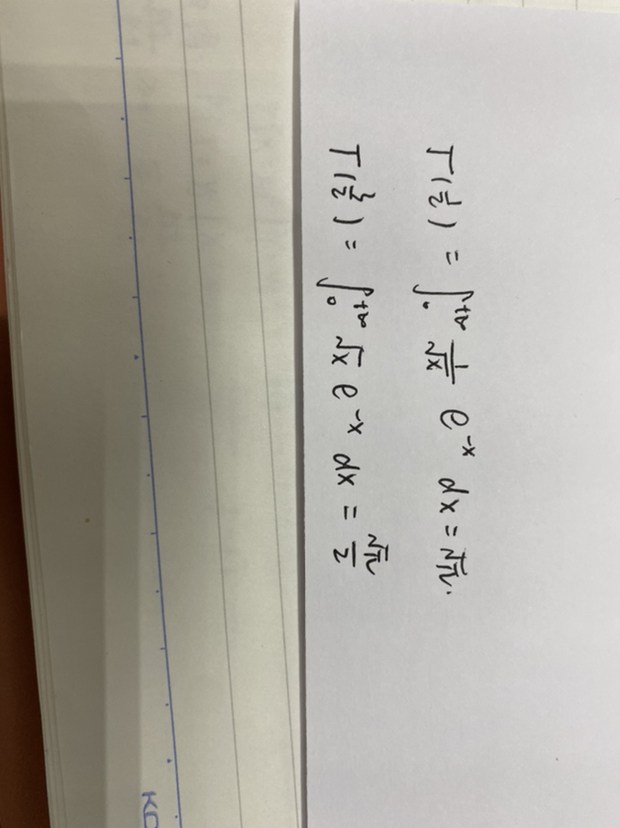 Γ(1/2) = ∫₀^{+∞} 1/√x e^{-x} dx = √π.
Γ(3/2) = ∫₀^{+∞} √x e^{-x} dx = √π/2
KO